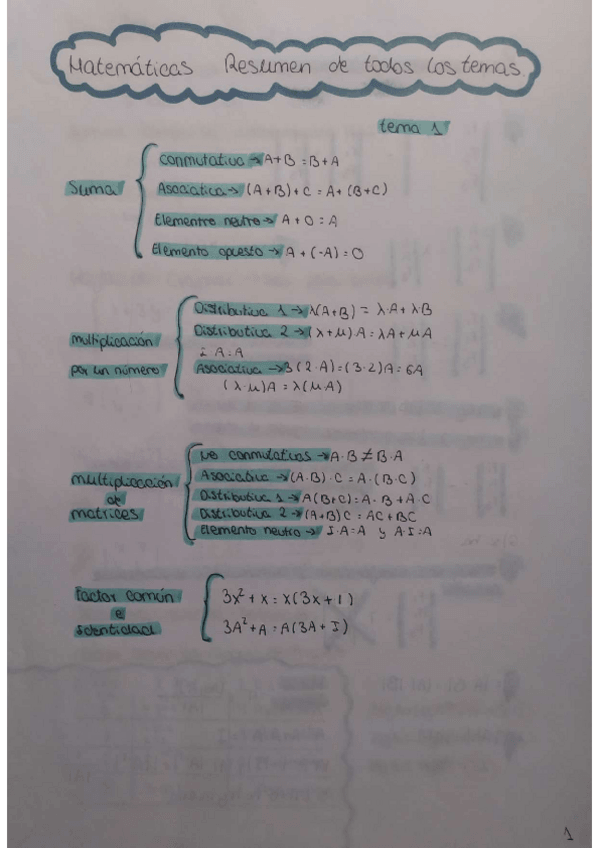 Matemáticas Resumen de todos los temas.
tema 1
Suma
Conmutativa → A+B=B+A
Asociativa → (A+B)+C = A+(B+C)
Elementro neutro → A+O=A
Elemento opuesto → A+(-A)=O
multiplicación
por un número
Distributiva 1 → λ(A+B) = λ·A+λ·B
Distributiva 2 → (λ+μ)A=λA+μA
1·A=A
Asociativa → 3(2·A)=(3·2)A=6A
(λ·μ)A = λ(μ·A)
multiplicación
de
matrices
No conmutativas → A·B≠B·A
Asociativa → (A·B)·C = A·(B·C)
Distributiva 1 → A(B+C)=A·B+A·C
Distributiva 2 → (A+B)C = AC+BC
Elemento neutro → I·A=A y A·I=A
Factor común
e
Identidad
3x²+x = x(3x+1)
3A²+A = A(3A+I)
1